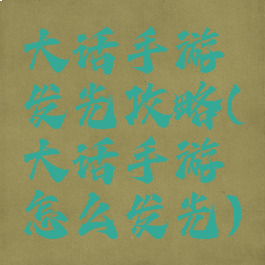 大话手游
发光攻略(
大话手游
怎么发光)